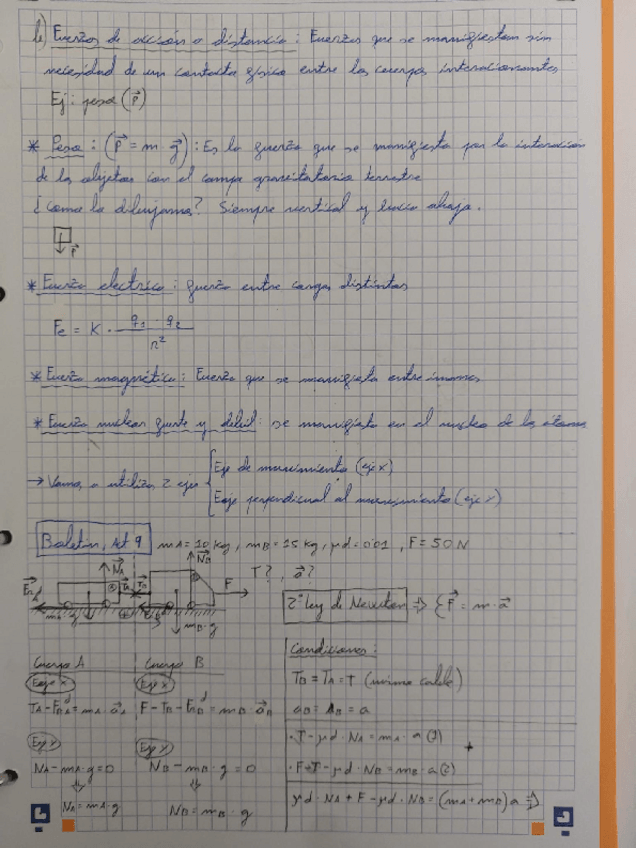 b) Fuerzas de acción a distancia : Fuerzas que se manifiestan sin
necesidad de un contacto físico entre los cuerpos interaccionantes
Ej: peso (P⃗)
* Peso : (P⃗ = m · g⃗) : Es la fuerza que se manifiesta por la interacción
de los objetos con el campo gravitatorio terrestre
¿Como lo dibujamos? Siempre vertical y hacia abajo.
P⃗
* Fuerza electrica : fuerza entre cargas distintas
Fe = K · q1 · q2 / r²
* Fuerza magnética : Fuerza que se manifiesta entre imanes
* Fuerza nuclear fuerte y débil : se manifiesta en el nucleo de los átomos
→ Vamos a utilizar 2 ejes
Eje de movimiento (eje x)
Eje perpendicual al movimiento (eje y)
Boletín, Act 9 mA = 10 kg, mB = 15 kg, μd = 0'01, F = 50 N
N⃗A N⃗B
T⃗A T⃗B F T?, a⃗?
mB · g
2ª ley de Newton ⇒ {F⃗ = m · a⃗
Cuerpo A Cuerpo B
Eje x Eje x
TA - FRAd = mA · a⃗A F - TB - FRBd = mB · a⃗B
Eje y Eje y
NA - mA · g = 0 NB - mB · g = 0
⇓ ⇓
NA = mA · g NB = mB · g
Condiciones :
TB = TA = T (mismo cable)
aB = AB = a
· T - μd · NA = mA · a (1)
+
· F - T - μd · NB = mB · a (2)
μd · NA + F - μd · NB = (mA + mB) a ⇒